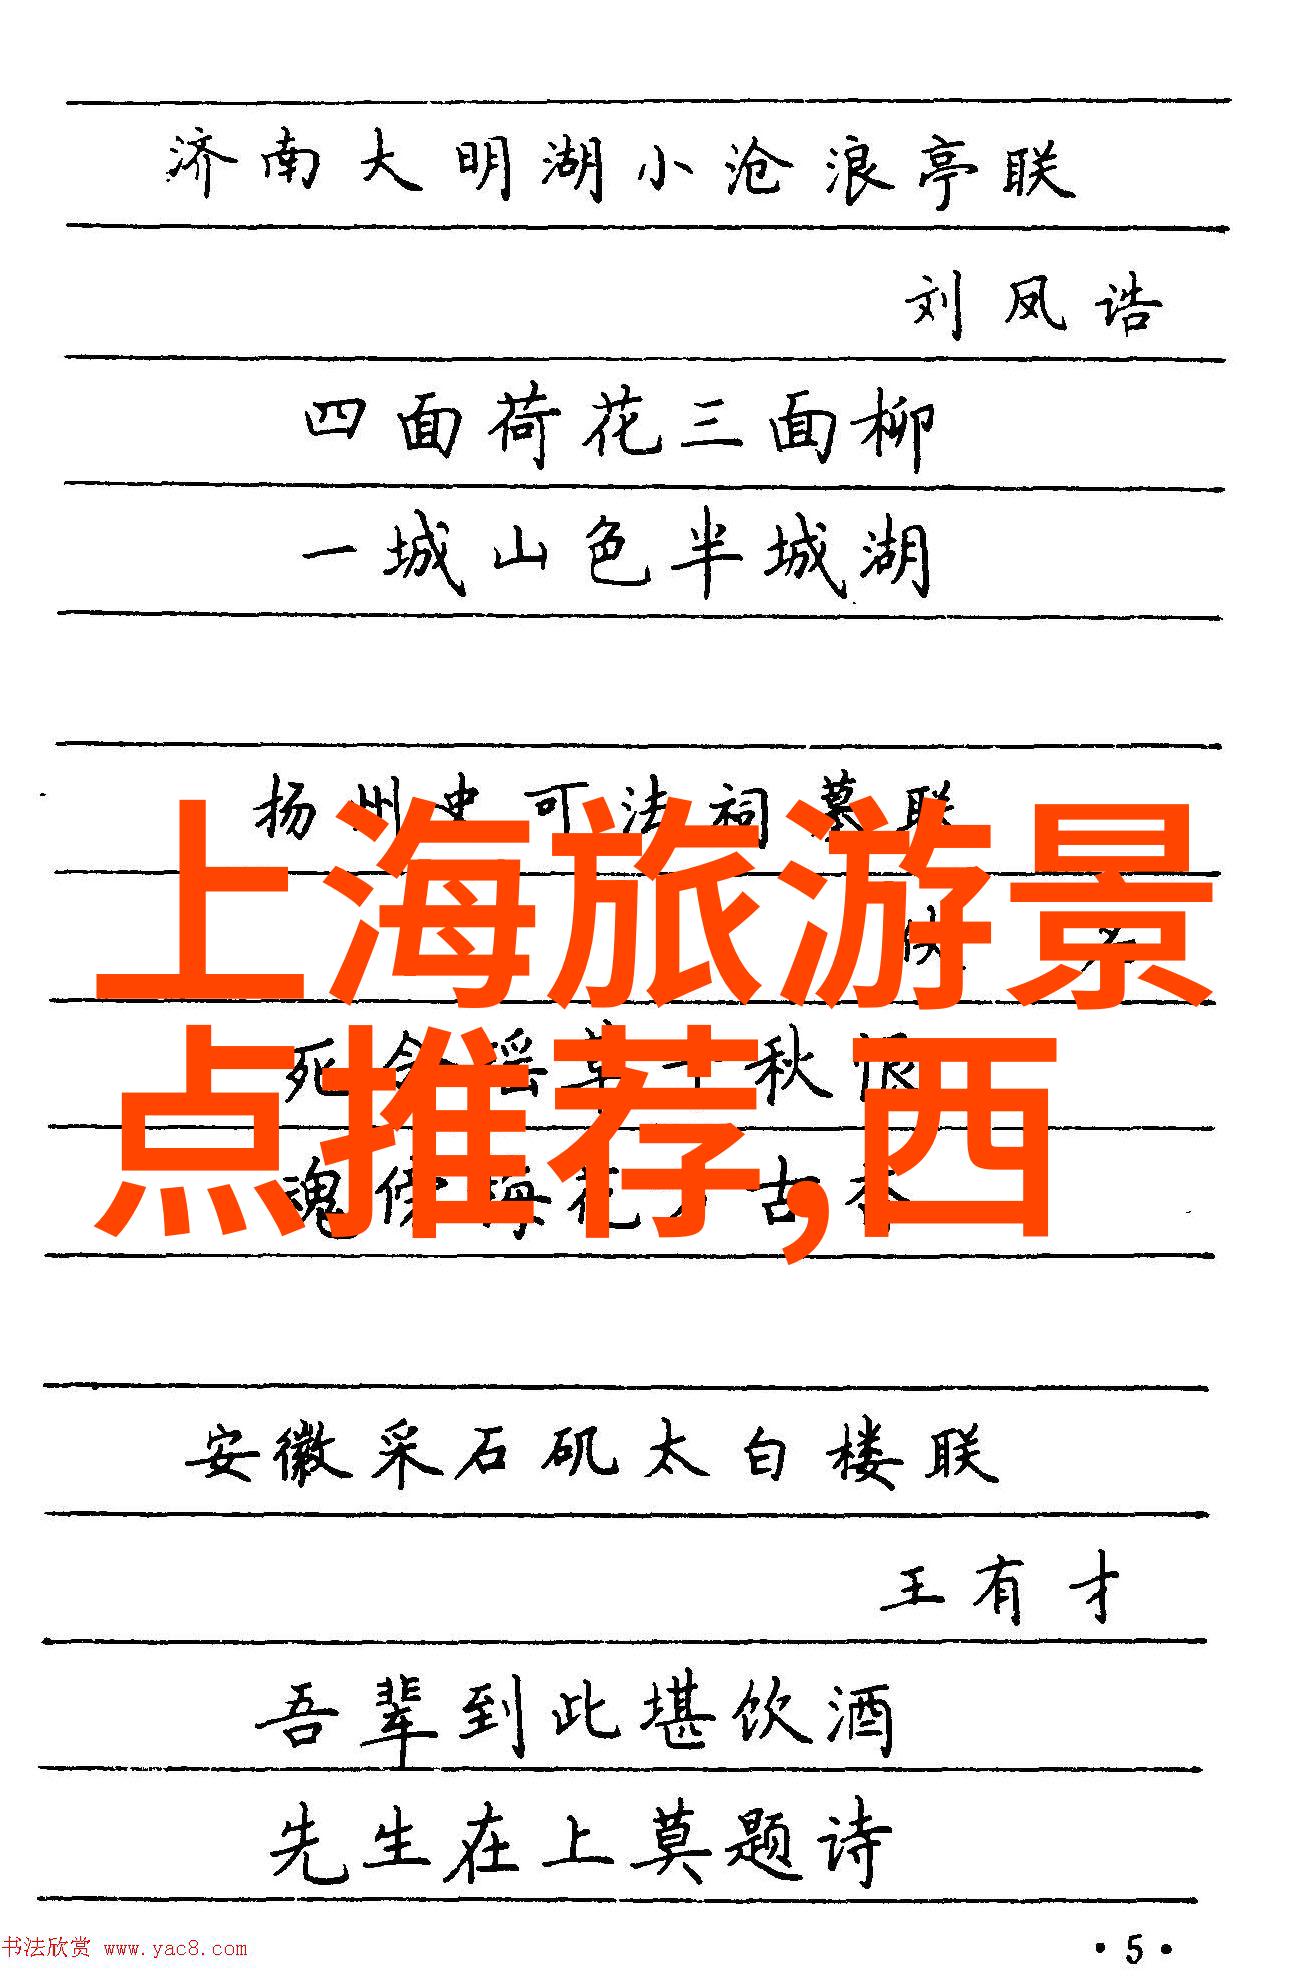 济南大明湖小沧浪亭联
刘凤诰
四面荷花三面柳
一城山色半城湖
扬州史可法祠墓联
上海旅游景
点推荐,西
秋恨
魂傍梅花 古香
安徽采石矶太白楼联
王有才
吾辈到此堪饮酒
先生在上莫题诗
书法欣赏 www.yac8.com
·5·